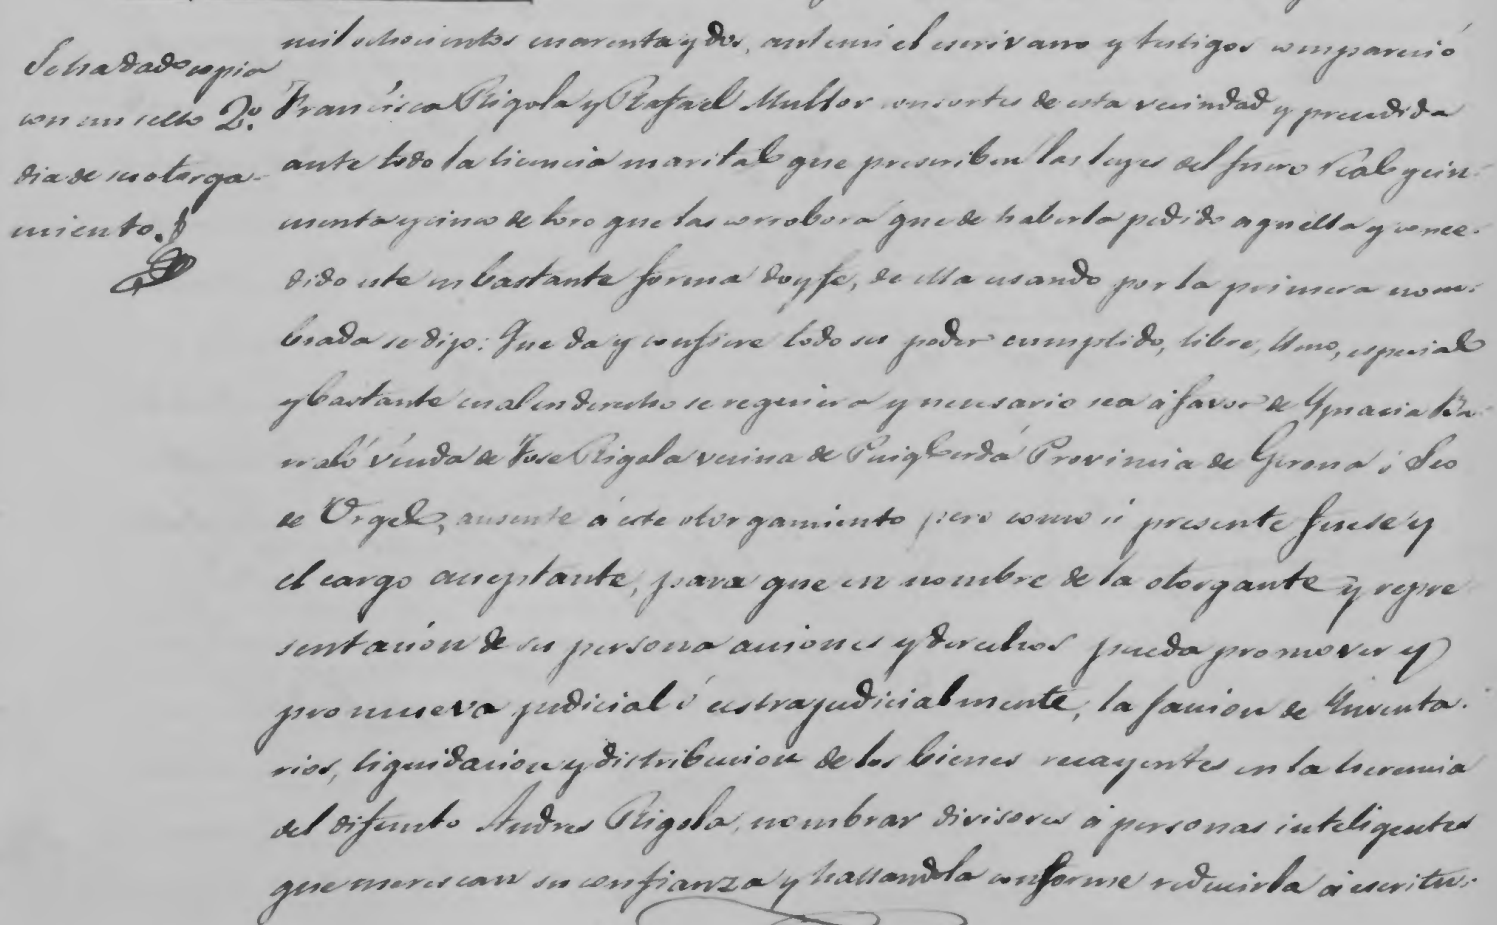 Se ha dado copia
con un sello 2º.
dia de su otorga-
miento.
mil ochocientos cuarenta y dos, ante mi el escrivano y testigos compareció
Francisca Rigola y Rafael Mullor consortes de esta vecindad y precedida
ante todo la licencia marital que prescriben las leyes del fuero Real y cin-
cuenta y cinco de toro que las corrobora que de haberla pedido aquella y conce-
dido este en bastante forma doy fe, de ella usando por la primera nom-
brada se dijo: Que da y confiere todo su poder cumplido, libre, lleno, especial
y bastante cual en derecho se requiera y necesario sea á favor de Ygnacia
viuda de Jose Rigola vecina de Puigcerdá Provincia de Gerona ó Seo
de Urgel, ausente á este otorgamiento pero como si presente fuese y
el cargo aceptante, para que en nombre de la otorgante y repre
sentacion de su persona acciones y derechos pueda promover y
promueva judicial ó estrajudicialmente, la faccion de Ynventa-
rios, liquidacion y distribucion de los bienes recayentes en la herencia
del difunto Andres Rigola, nombrar divisores á personas inteligentes
que merescan su confianza y hallandola conforme reducirla á escritu-